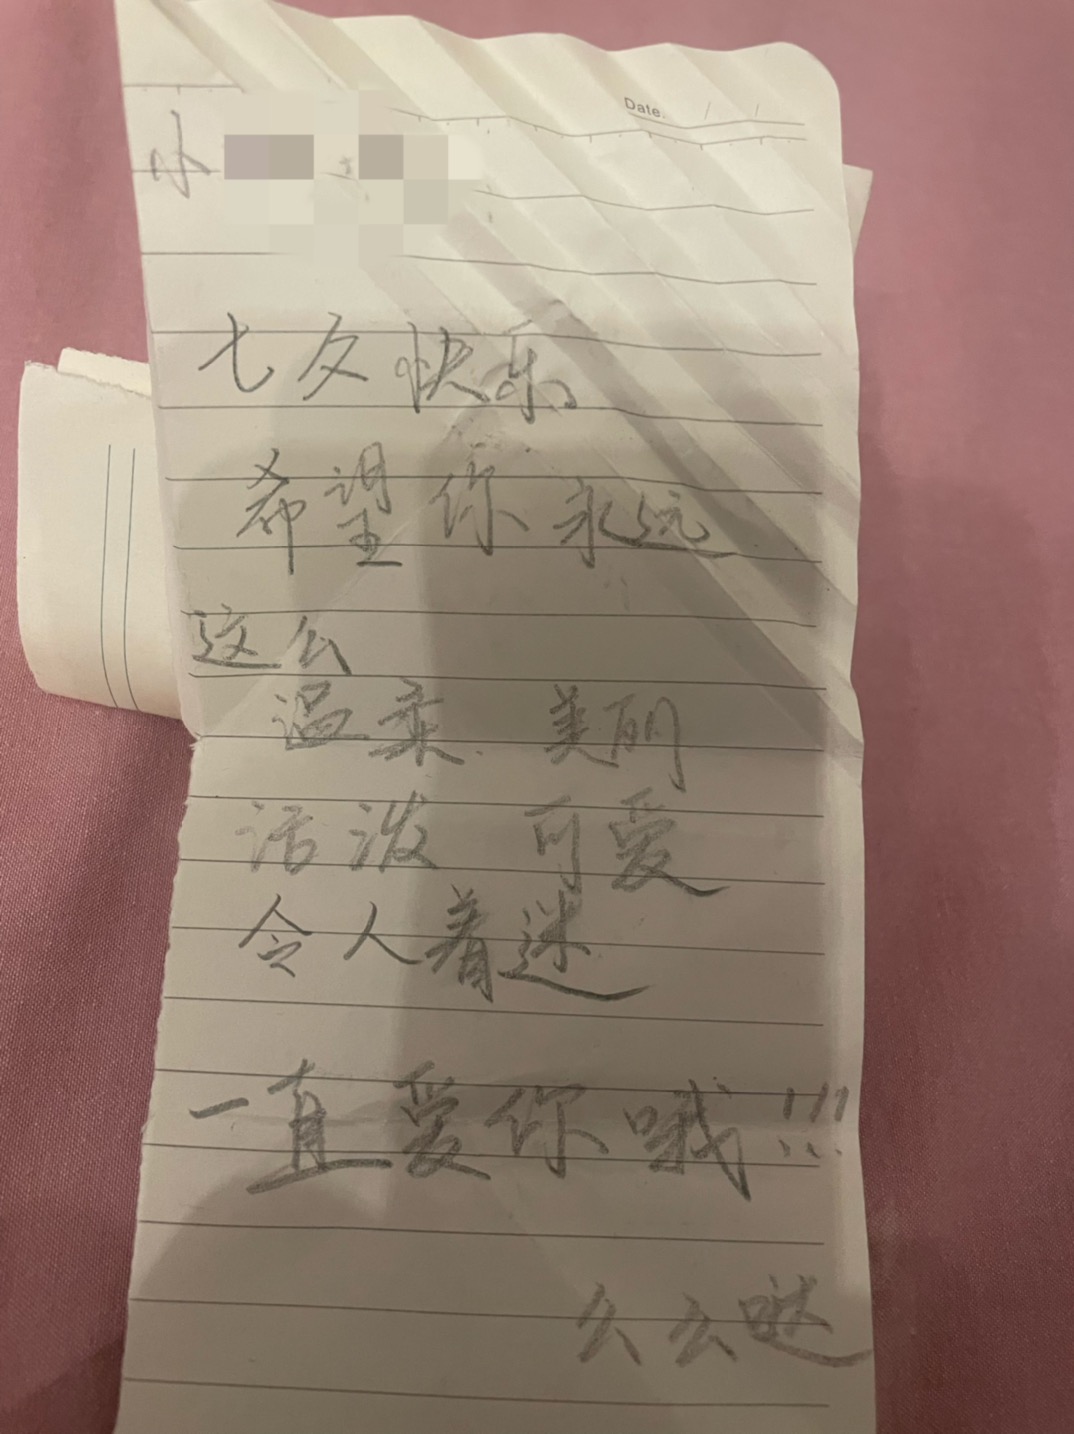 Date.
小
七夕快乐
希望你永远
这么
温柔 美丽
活泼 可爱
令人着迷
一直爱你哦!!!
么么哒